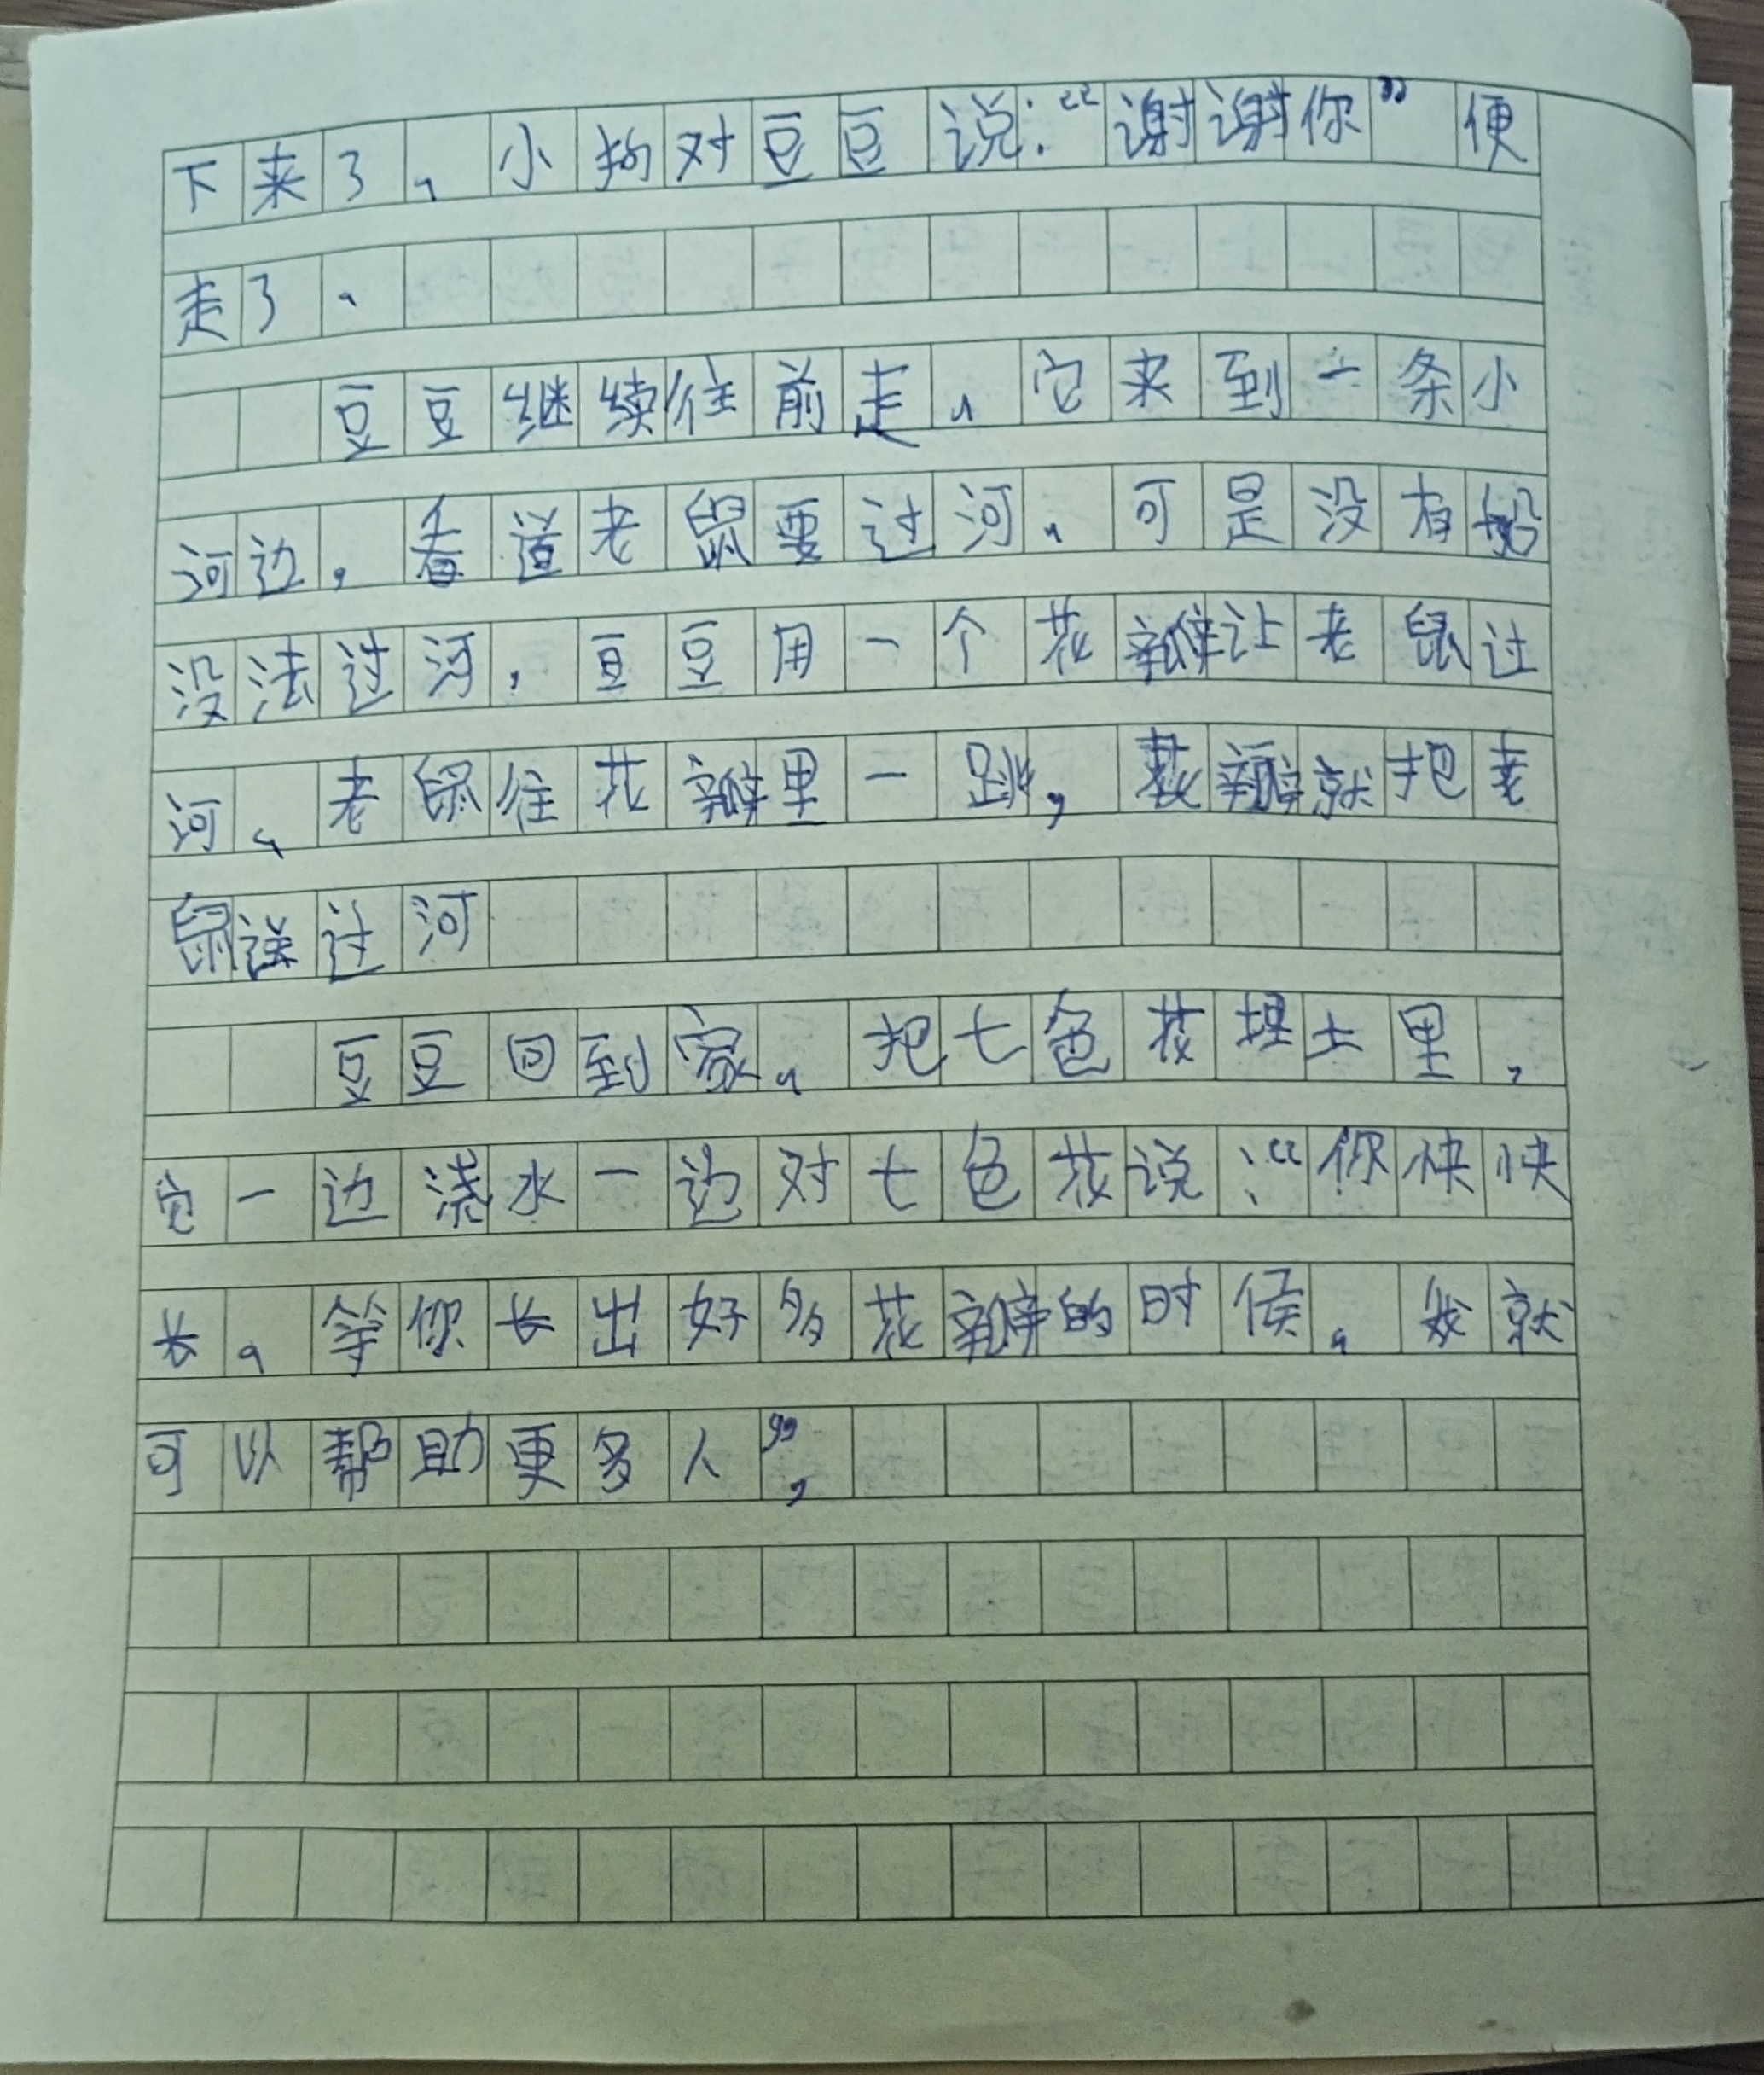 下来了，小狗对豆豆说：“谢谢你”便
走了。
豆豆继续往前走，它来到一条小
河边，看道老鼠要过河，可是没有船
没法过河，豆豆用一个花瓣让老鼠过
河，老鼠往花瓣里一跳，花瓣就把老
鼠送过河
豆豆回到家，把七色花埋土里，
它一边浇水一边对七色花说：“你快快
长，等你长出好多花瓣的时候，我就
可以帮助更多人”，